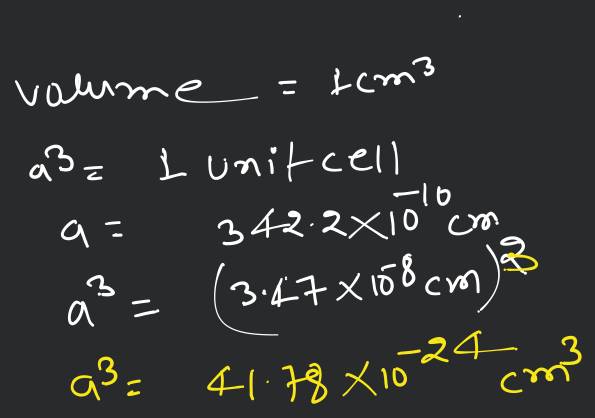 volume = 1cm³
a³ = 1 unit cell
a = 342.2×10⁻¹⁰ cm
a³ = (3.47 × 10⁻⁸ cm)³
a³ = 41.78 × 10⁻²⁴ cm³